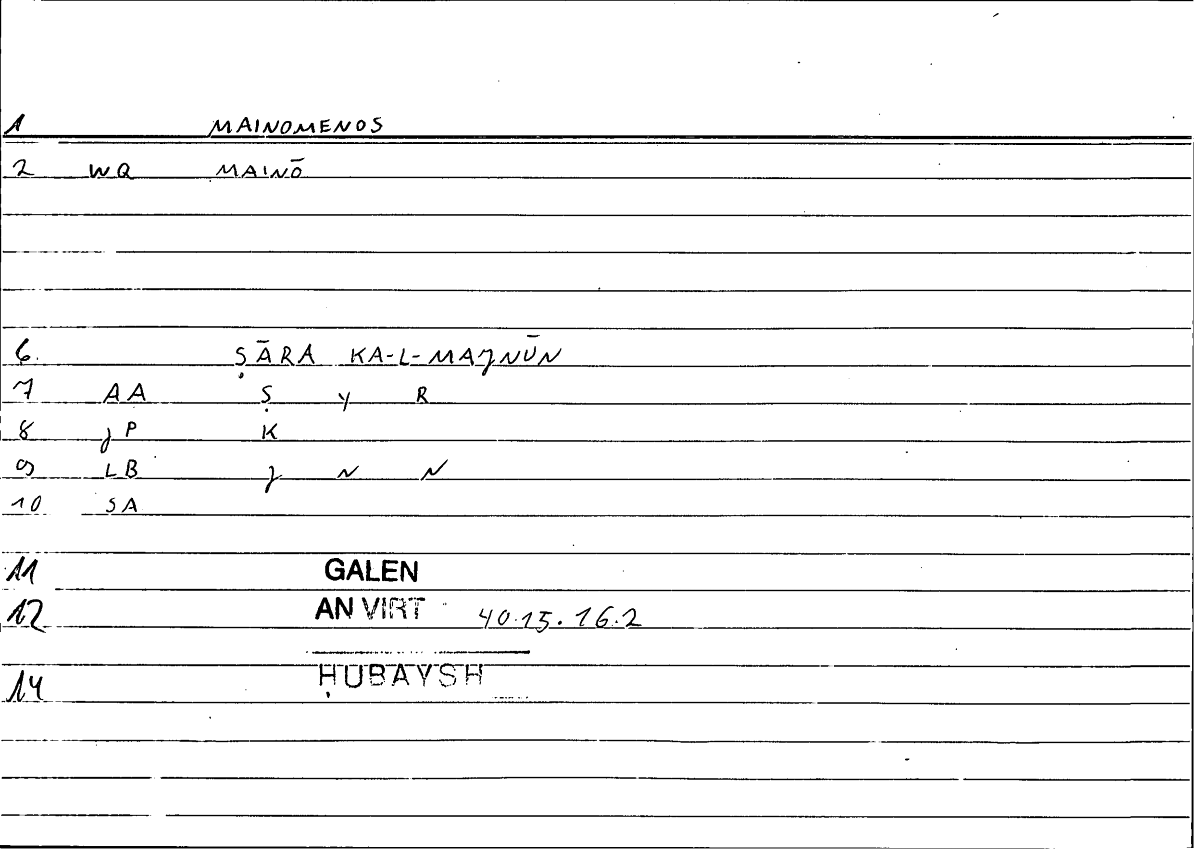 1 MAINOMENOS
2 WQ MAINŌ
6. ṢĀRA KA-L-MAJNŪN
7 AA Ṣ Y R
8 JP K
9 LB J N N
10 SA
11 GALEN
12 AN VIRT 40.15.16.2
14 ḤUBAYSH